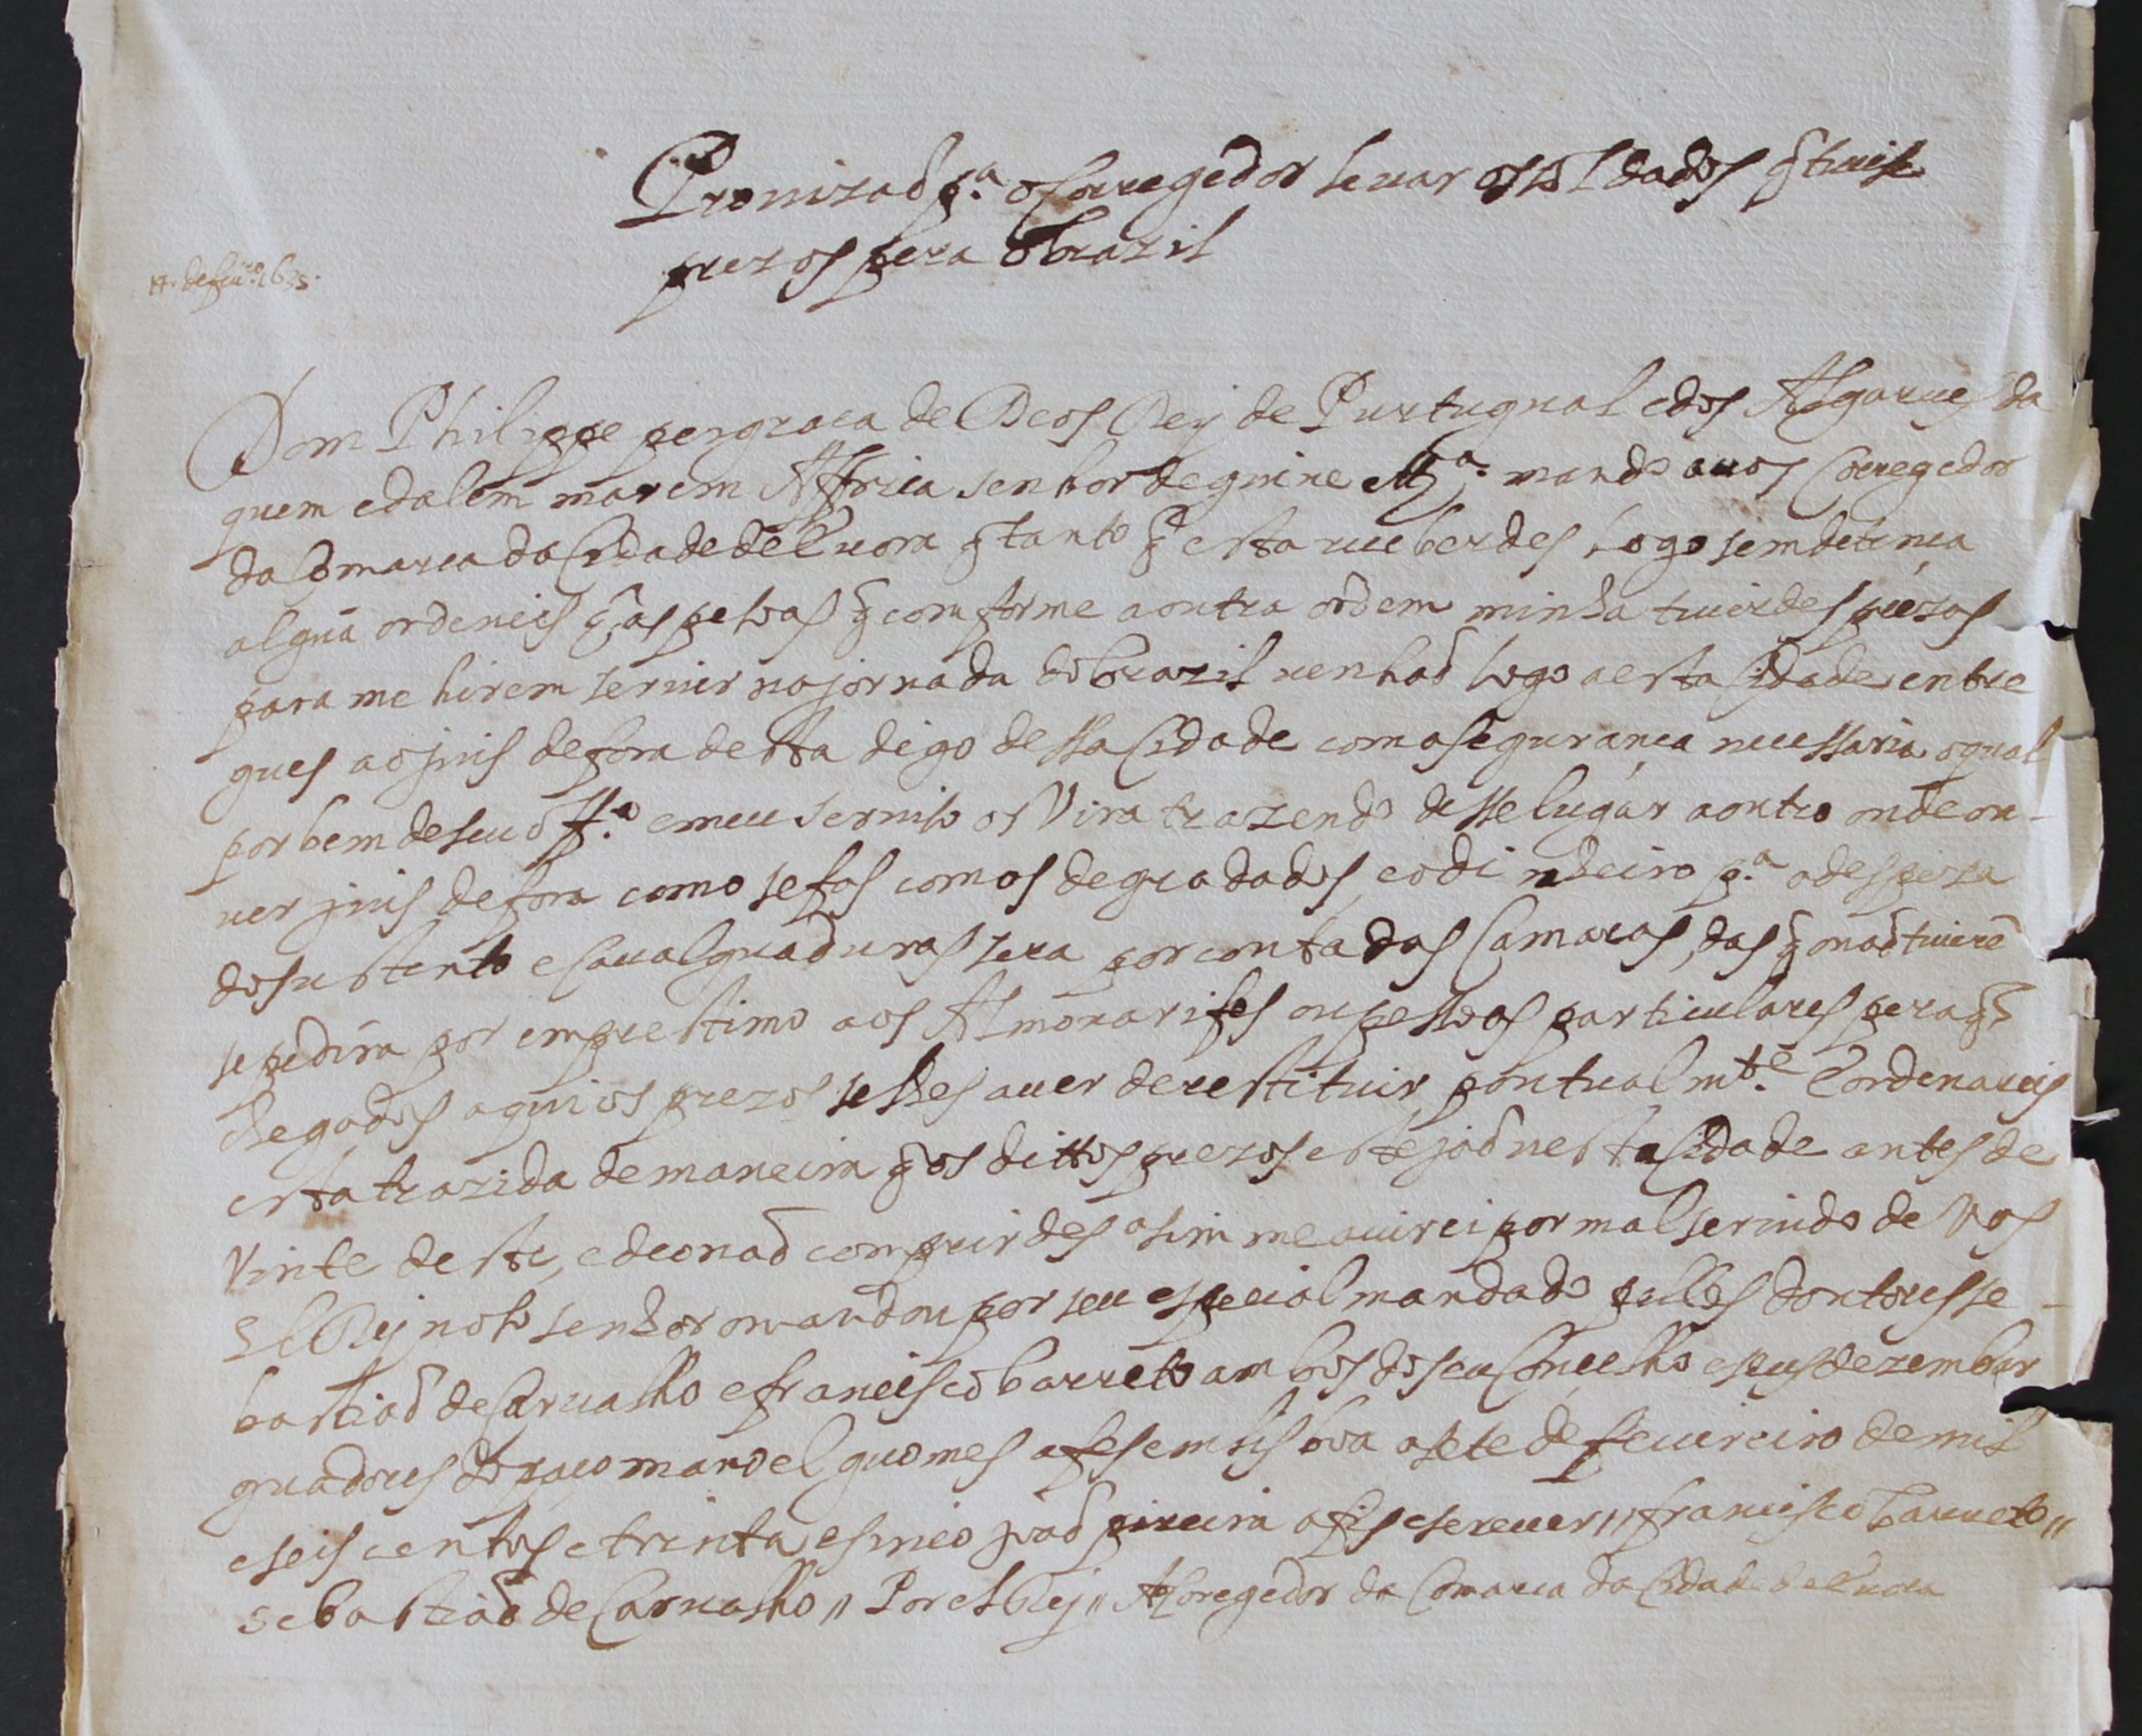 Provizaõ p.ª o Corregedor levar os soldados q̃ tiver
prezos pera o brazil
de feu.ro 1635.
Dom Philippe per graca de Deos Rey de Purtugual e dos Algarues da
quem e dalem mar em Affrica senhor de guine ett.ª mando a uos Corregedor
da Comarca da Cidade de Euora q̃ tanto q̃ esta reseberdes logo sem detença
algũa ordeneis q̃ as pesoas q̃ comforme a outra ordem minha tiuerdes prezos
para me hirem seruir na jornada do brazil uenhaõ logo a esta Cidade entre
gues ao juis de fora desta digo dessa Cidade com a segurança necessaria o qual
por bem de seu off.º e meu seruiso os Vira trazendo desse lugar a outro onde ou-
uer juis de fora como se fas com os degradados, e o dinheiro p.ª a despeza
do sustento e caualguaduras sera por conta das Camaras, das q̃ o naõ tiuerẽ
se pedira por emprestimo aos Almoxarifes ou pessoas particulares pera q̃
chegados aqui os prezos se lhes auer de restituir pontualm.te E ordenareis
esta trazida de maneira q̃ os dittos prezos estejaõ nesta Cidade antes de
Vinte deste, e de o naõ comprirdes asim me auirei por mal seruido de vos
El Rej noso senhor o mandou por seu especial mandado pellos doutores se-
bastiaõ de Carualho e francisco barreto ambos do seu Conselho e seus dezembar
guadores do paço manoel guomes a fes em lisboa a sete de feuireiro de mil
e seis centos e trinta e sinco joaõ pireira a fis escreuer // francisco barreto //
sebastiaõ de Carualho // Por el Rej // Ao Coregedor da Comarca da Cidade de Euora